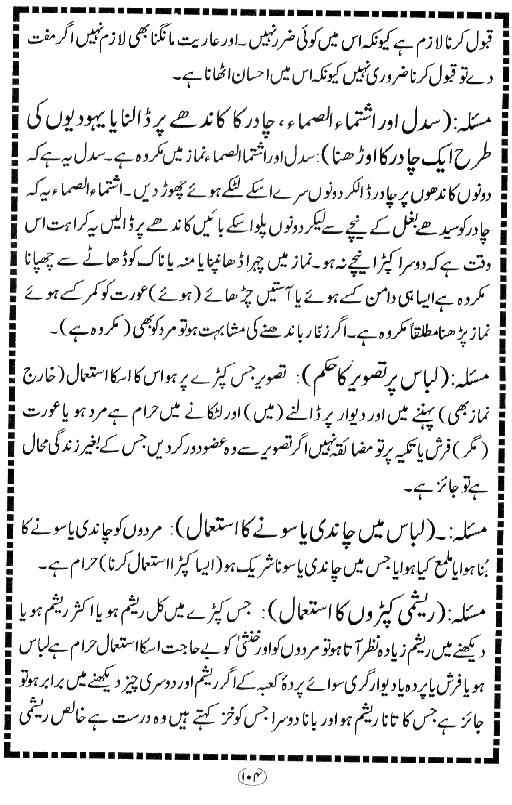 قبول کرنا لازم ہے کیونکہ اس میں کوئی ضرر نہیں ۔ اور عاریت مانگنا بھی لازم نہیں اگر مفت
دے تو قبول کرنا ضروری نہیں کیونکہ اس میں احسان اٹھانا ہے ۔
مسئلہ: (سدل اور اشتماء الصماء، چادر کا کاندھے پر ڈالنا یا یہودیوں کی
طرح ایک چادر کا اوڑھنا): سدل اور اشتما الصماء نماز میں مکروہ ہے۔ سدل یہ ہے کہ
دونوں کاندھوں پر چادر ڈالکر دونوں سرے اسکے لٹکے ہوئے چھوڑ دیں۔ اشتماء الصماء یہ کہ
چادر کو سیدھے بغل کے نیچے سے لیکر دونوں پلو اسکے بائیں کاندھے پر ڈالیں یہ کراہت اس
وقت ہے کہ دوسرا کپڑا نیچے نہ ہو۔ نماز میں چہرا ڈھانپنا یا منہ یا ناک کو ڈھاٹے سے چھپانا
مکروہ ہے ایسا ہی دامن کسے ہوئے یا آستیں چڑھائے (ہوئے) عورت کو کمر کسے ہوئے
نماز پڑھنا مطلقاً مکروہ ہے۔ اگر زنّار باندھنے کی مشابہت ہو تو مرد کو بھی (مکروہ ہے)۔
مسئلہ: (لباس پر تصویر کا حکم): تصویر جس کپڑے پر ہو اس کا اسکا استعمال (خارج
نماز بھی) پہننے میں اور دیوار پر ڈالنے (میں) اور لٹکانے میں حرام ہے مرد ہو یا عورت
(مگر) فرش یا تکیہ پر تو مضائقہ نہیں اگر تصویر سے وہ عضو دور کر دیں جس کے بغیر زندگی محال
ہے تو جائز ہے۔
مسئلہ:۔ (لباس میں چاندی یا سونے کا استعمال): مردوں کو چاندی یا سونے کا
بُنا ہوا یا ملمع کیا ہوا یا جس میں چاندی یا سونا شریک ہو (ایسا کپڑا استعمال کرنا) حرام ہے۔
مسئلہ: (ریشمی کپڑوں کا استعمال): جس کپڑے میں کل ریشم ہو یا اکثر ریشم ہو یا
دیکھنے میں ریشم زیادہ نظر آتا ہو تو مردوں کو اور خنثی کو بے حاجت اسکا استعمال حرام ہے لباس
ہو یا فرش یا پردہ یا دیوار گری سوائے پردۂ کعبہ کے اگر ریشم اور دوسری چیز دیکھنے میں برابر ہو تو
جائز ہے جس کا تانا ریشم ہو اور بانا دوسرا جس کو خز کہتے ہیں وہ درست ہے خالص ریشمی
۱۰۴